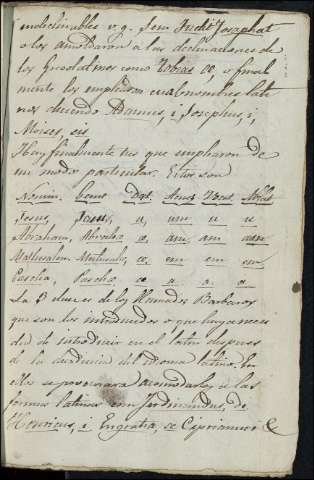 indeclinables v.g. Jesu Judit Josaphat
o los amoldaron á las declinaciones de
los Greco latinos como Tobias æ, o final
mente los emplearon cual nombres lati
nos diciendo Adamus, i Josephus, i,
Moises, sis
Hay finalmente tres que emplearon de
un modo particular. Estos son
Nomin. Genit. Dat. Acus. Vocat. Ablat
Jesus, Jesu, u, um u u
Abraham, Abrahæ æ, am am am
Mathusalem Mathusalæ, æ em em em
Pascha, Paschæ æ a. a. a
La 3 clase es de los llamados Barbaros
que son los introducidos o que hayan
de introducir en el latin despues
de la del idioma latino. En
ellos se procurara acomodarlos a las
formas latinas como Ferdinandus, de
Henricus, i. Engratia, æ Ciprianus i &